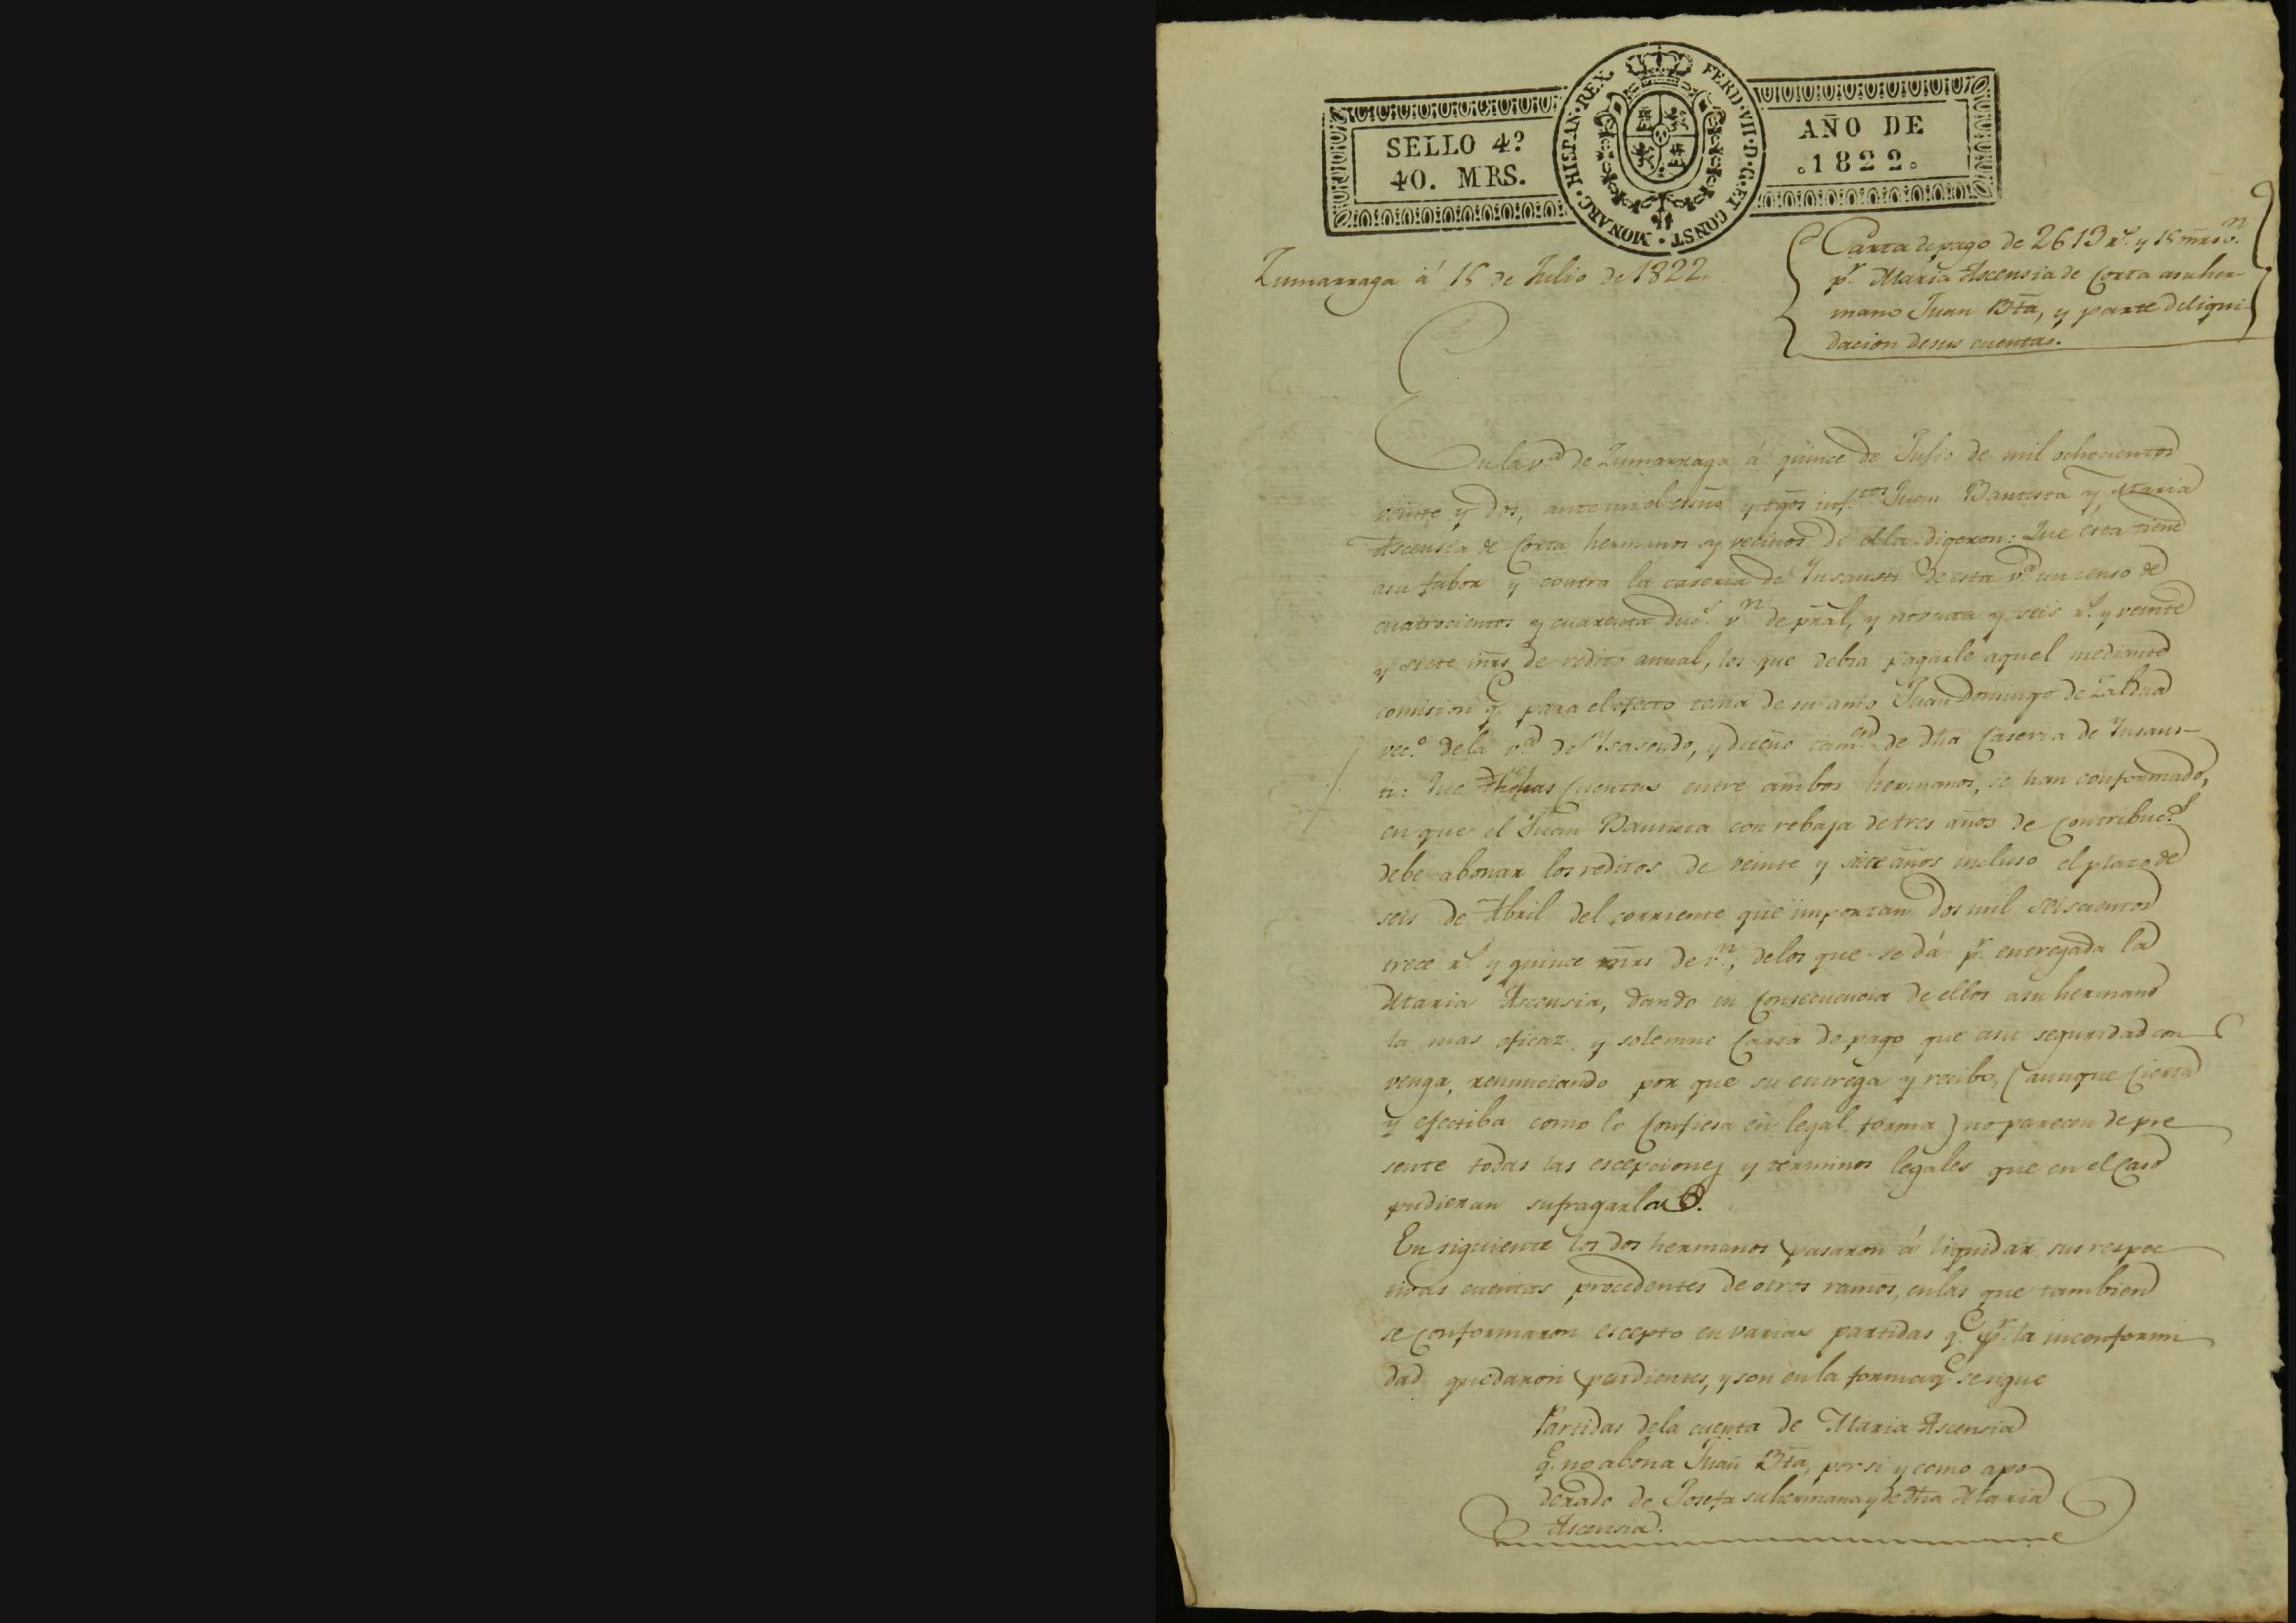 SELLO 4º
40. MRS.
MONARC · HISPAN · REX · FERD · VII · D · G · ET CONST ·
AÑO DE
1822
Zumarraga á 15 de Julio de 1822.
Carta de pago de 2613 rs. y 15 mrs vn.
pr. Maria Ascensia de Corta a su her-
mano Juan Bta, y parte de liqui-
dacion de sus cuentas.
En la va de Zumarraga á quince de Julio de mil ochocientos
veinte y dos, ante mi el esno y tgos infrtos Juan Bautista y Maria
Ascensia de Corta hermanos y vecinos de ella digeron: Que esta tiene
a su fabor y contra la caseria de Insausti de esta va un censo de
cuatrocientos y cuarenta ducs vn de pral, y noventa y seis rs. y veinte
y siete mrs de redito anual, los que debia pagarle aquel mediante
comision qe. para el efecto tenia de su amo Juan Domingo de Zaldua
veco. de la va de Isasondo, y dueño tamen de dha Caseria de Insaus-
ti: Que hechas Cuentas entre ambos hermanos, se han conformado,
en que el Juan Bautista con rebaja de tres años de Contribucs
debe abonar los reditos de veinte y siete años incluso el plazo de
seis de Abril del corriente que importan dos mil seiscientos
trece rs y quince mrs de vn, de los que se dá pr. entregada la
Maria Ascensia, dando en Consecuencia de ellos a su hermano
la mas eficaz y solemne Carta de pago que a su seguridad con
venga, renunciando por que su entrega y recibo, (aunque Cierta
y efectiba como lo Confiesa en legal forma) no parecen de pre
sente todas las escepciones y terminos legales que en el Caso
pudieran sufragarla.
En siguiente los dos hermanos pasaron á liquidar sus respec
tivas cuentas procedentes de otros ramos, en las que tambien
se conformaron escepto en varias partidas qe. pr. la inconformi
dad quedaron pendientes, y son en la forma qe se sigue
Partidas de la cuenta de Maria Ascensia
qe. no abona Juan Bta, por si y como apo
derado de Josefa su hermana y de dha Maria
Ascensia.